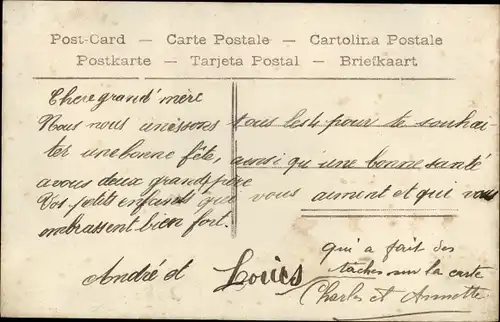 Post-Card — Carte Postale — Cartolina Postale
Postkarte — Tarjeta Postal — Briefkaart
Chere grand' mère
Nous nous unissons tous les 4 pour te souhai-
ter une bonne fête, ainsi qu'une bonne santé
a vous deux grand-père
Vos petits enfants que vous aiment et qui vous
embrassent bien fort.
André et Louis
qui a fait des
taches sur la carte
Charles et Annette